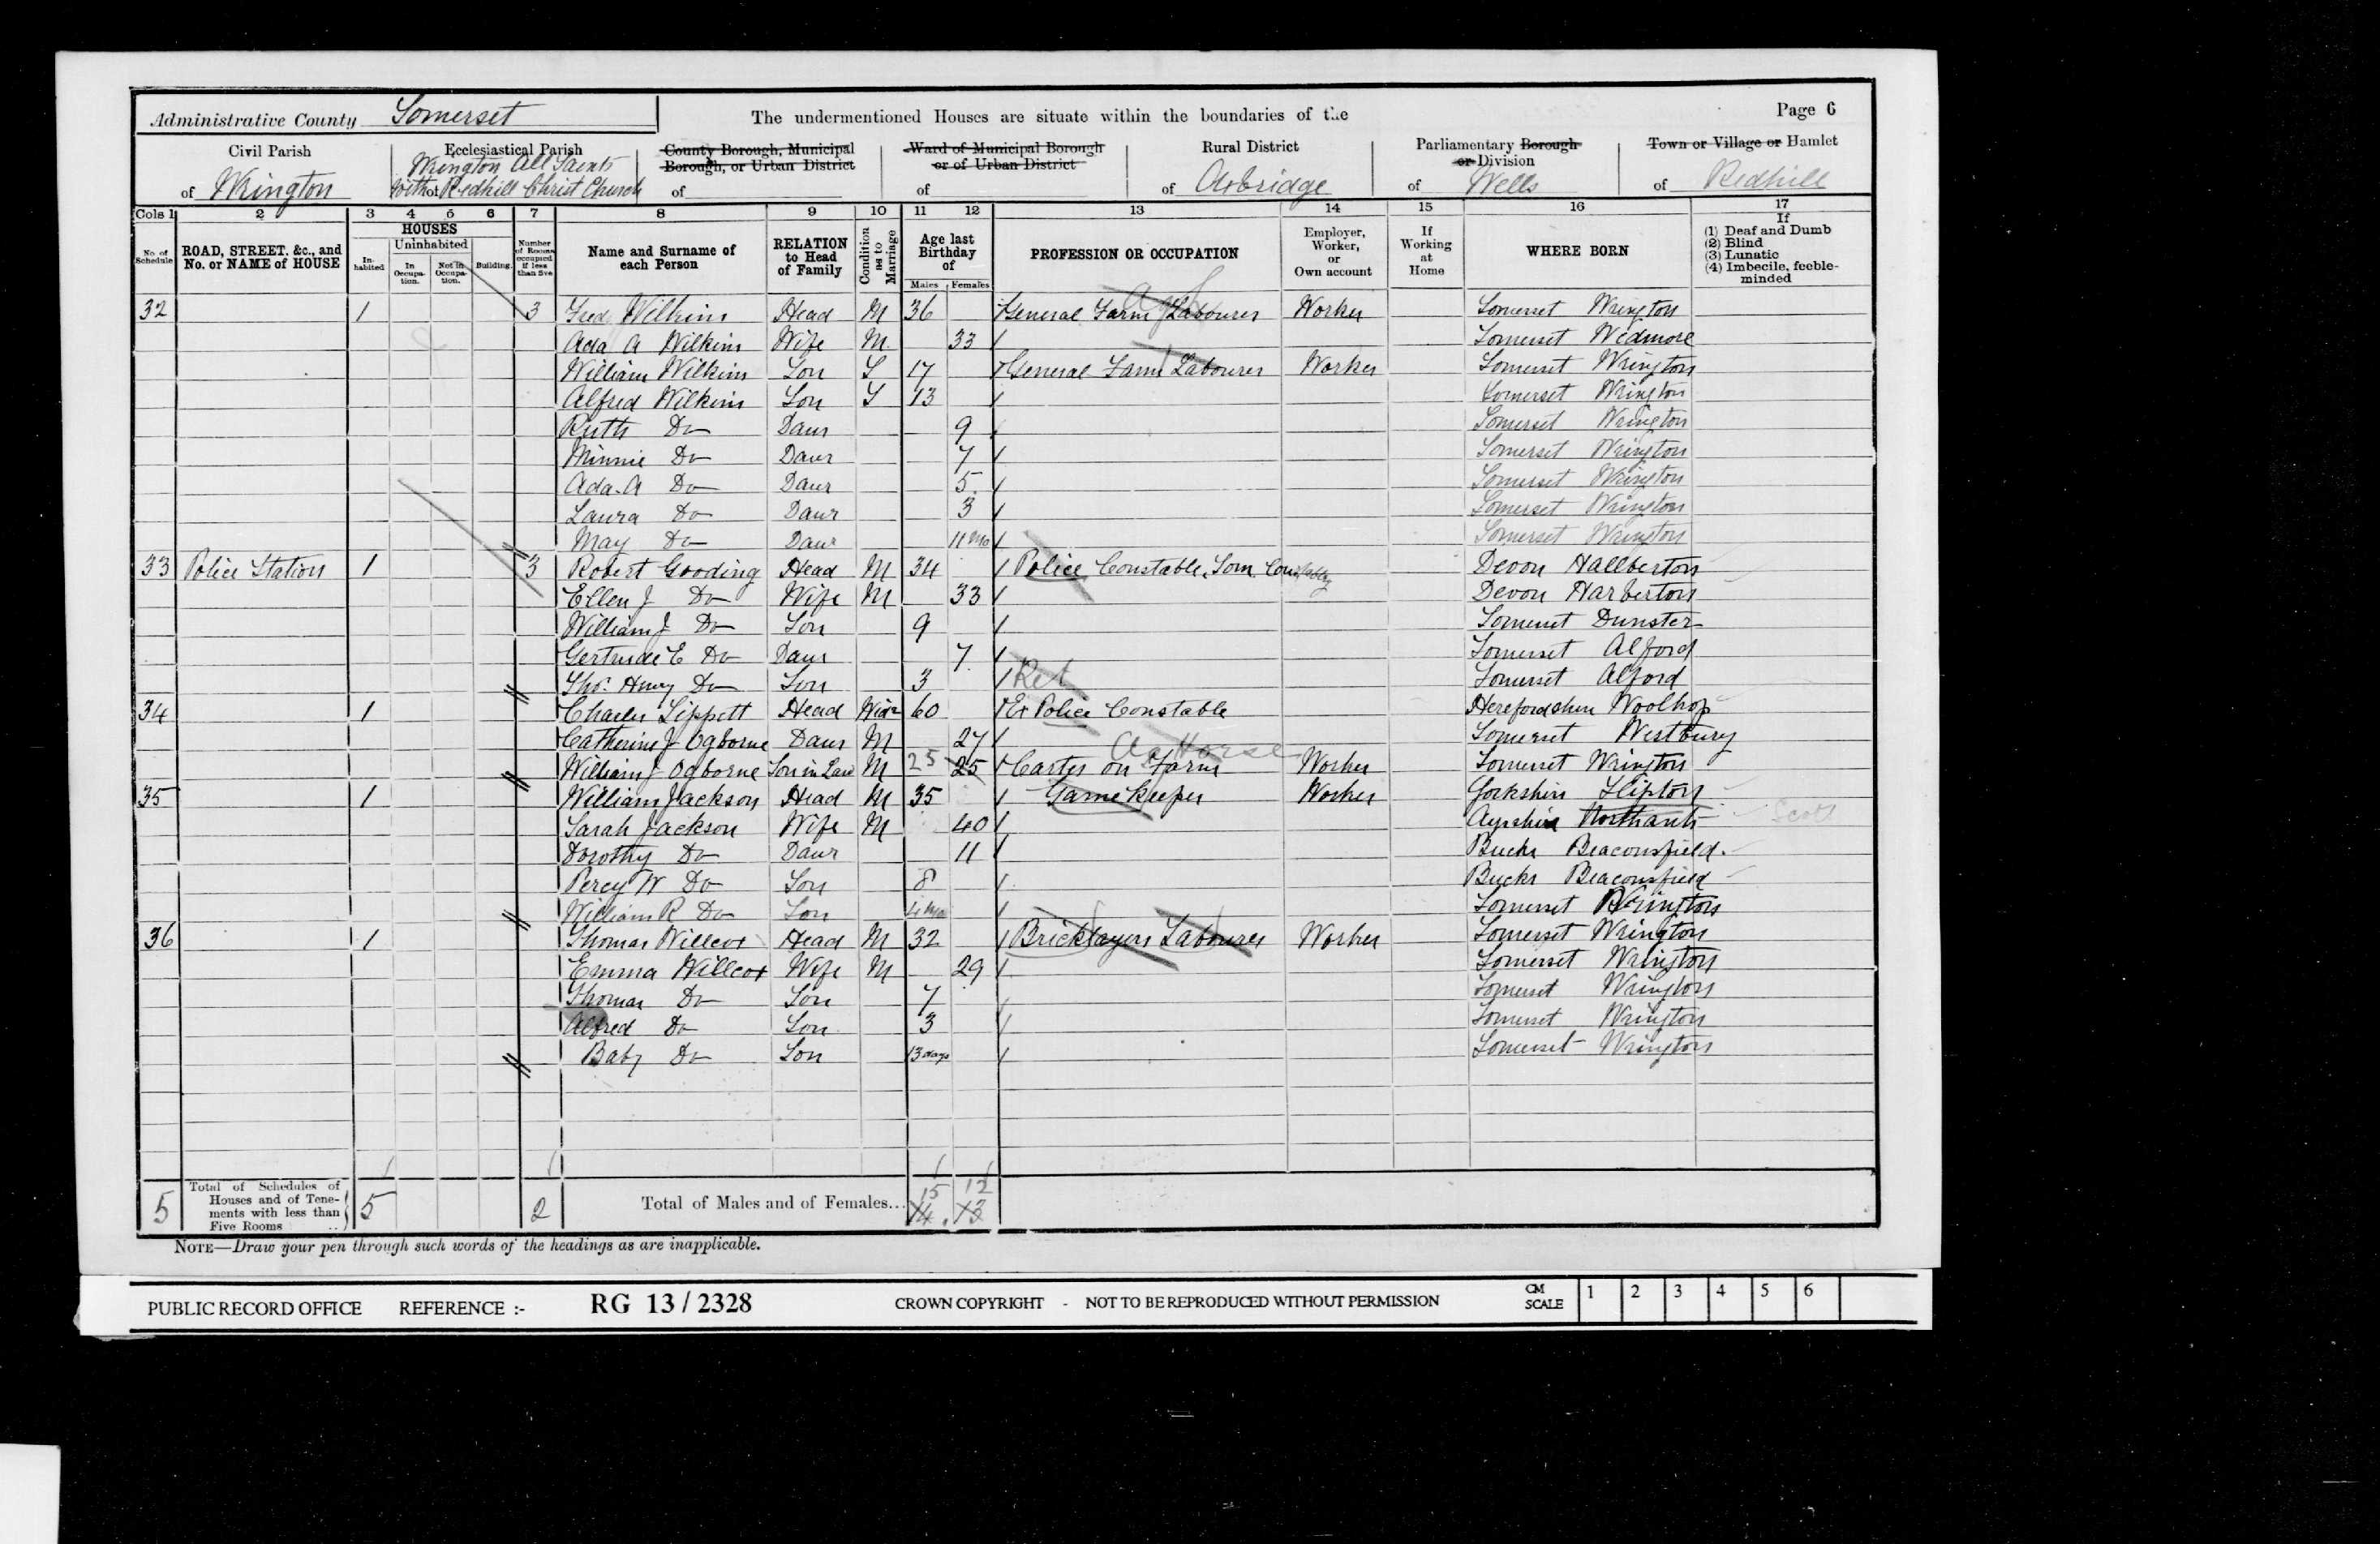 Administrative County Somerset
The undermentioned Houses are situate within the boundaries of the
Page 6
Civil Parish of Wrington
Ecclesiastical Parish of Wrington All Saints with Redhill Christ Church
County Borough, Municipal Borough, or Urban District of
Ward of Municipal Borough or of Urban District of
Rural District of Axbridge
Parliamentary Borough or Division of Wells
Town or Village or Hamlet of Redhill
Cols 1 2 3 4 5 6 7 8 9 10 11 12 13 14 15 16 17
No. of Schedule
ROAD, STREET, &c., and No. or NAME of HOUSE
HOUSES
Inhabited
Uninhabited
In Occupation.
Not in Occupation.
Building.
Number of Rooms occupied if less than five
Name and Surname of each Person
RELATION to Head of Family
Condition as to Marriage
Age last Birthday of
Males
Females
PROFESSION OR OCCUPATION
Employer, Worker, or Own account
If Working at Home
WHERE BORN
If
(1) Deaf and Dumb
(2) Blind
(3) Lunatic
(4) Imbecile, feeble-minded
32 1 3 Fred Wilkins Head M 36 General Farm Labourer Worker Somerset Wrington
Ada A Wilkins Wife M 33 Somerset Wedmore
William Wilkins Son S 17 General Farm Labourer Worker Somerset Wrington
Alfred Wilkins Son S 13 Somerset Wrington
Ruth Do Daur 9 Somerset Wrington
Minnie Do Daur 7 Somerset Wrington
Ada A Do Daur 5 Somerset Wrington
Laura Do Daur 3 Somerset Wrington
May Do Daur 11 Mo Somerset Wrington
33 Police Station 1 3 Robert Gooding Head M 34 Police Constable, Som. Constabley Devon Hallberton
Ellen J Do Wife M 33 Devon Harberton
William J Do Son 9 Somerset Dunster
Gertrude E Do Daur 7 Somerset Alford
Thos. Henry Do Son 3 Ret Somerset Alford
34 1 Charles Lippett Head Widr 60 Ex Police Constable Herefordshire Woolhop
Catherine J Ogborne Daur M 27 Somerset Westbury
William J Ogborne Son in Law M 25 25 Carter on Farm Horse Worker Somerset Wrington
35 1 William Jackson Head M 35 Game Keeper Worker Yorkshire Slipton
Sarah Jackson Wife M 40 Ayrshire Northants Scotl
Dorothy Do Daur 11 Bucks Beaconsfield.
Percy W Do Son 8 Bucks Beaconsfield
William R Do Son 4 Mo Somerset Wrington
36 1 Thomas Willcox Head M 32 Bricklayers Labourer Worker Somerset Wrington
Emma Willcox Wife M 29 Somerset Wrington
Thomas Do Son 7 Somerset Wrington
Alfred Do Son 3 Somerset Wrington
Baby Do Son 13 days Somerset Wrington
5 Total of Schedules of Houses and of Tenements with less than Five Rooms .. 5 2 Total of Males and of Females... 15 12
14. 13
NOTE—Draw your pen through such words of the headings as are inapplicable.
PUBLIC RECORD OFFICE REFERENCE :- RG 13 / 2328 CROWN COPYRIGHT - NOT TO BE REPRODUCED WITHOUT PERMISSION CM SCALE 1 2 3 4 5 6